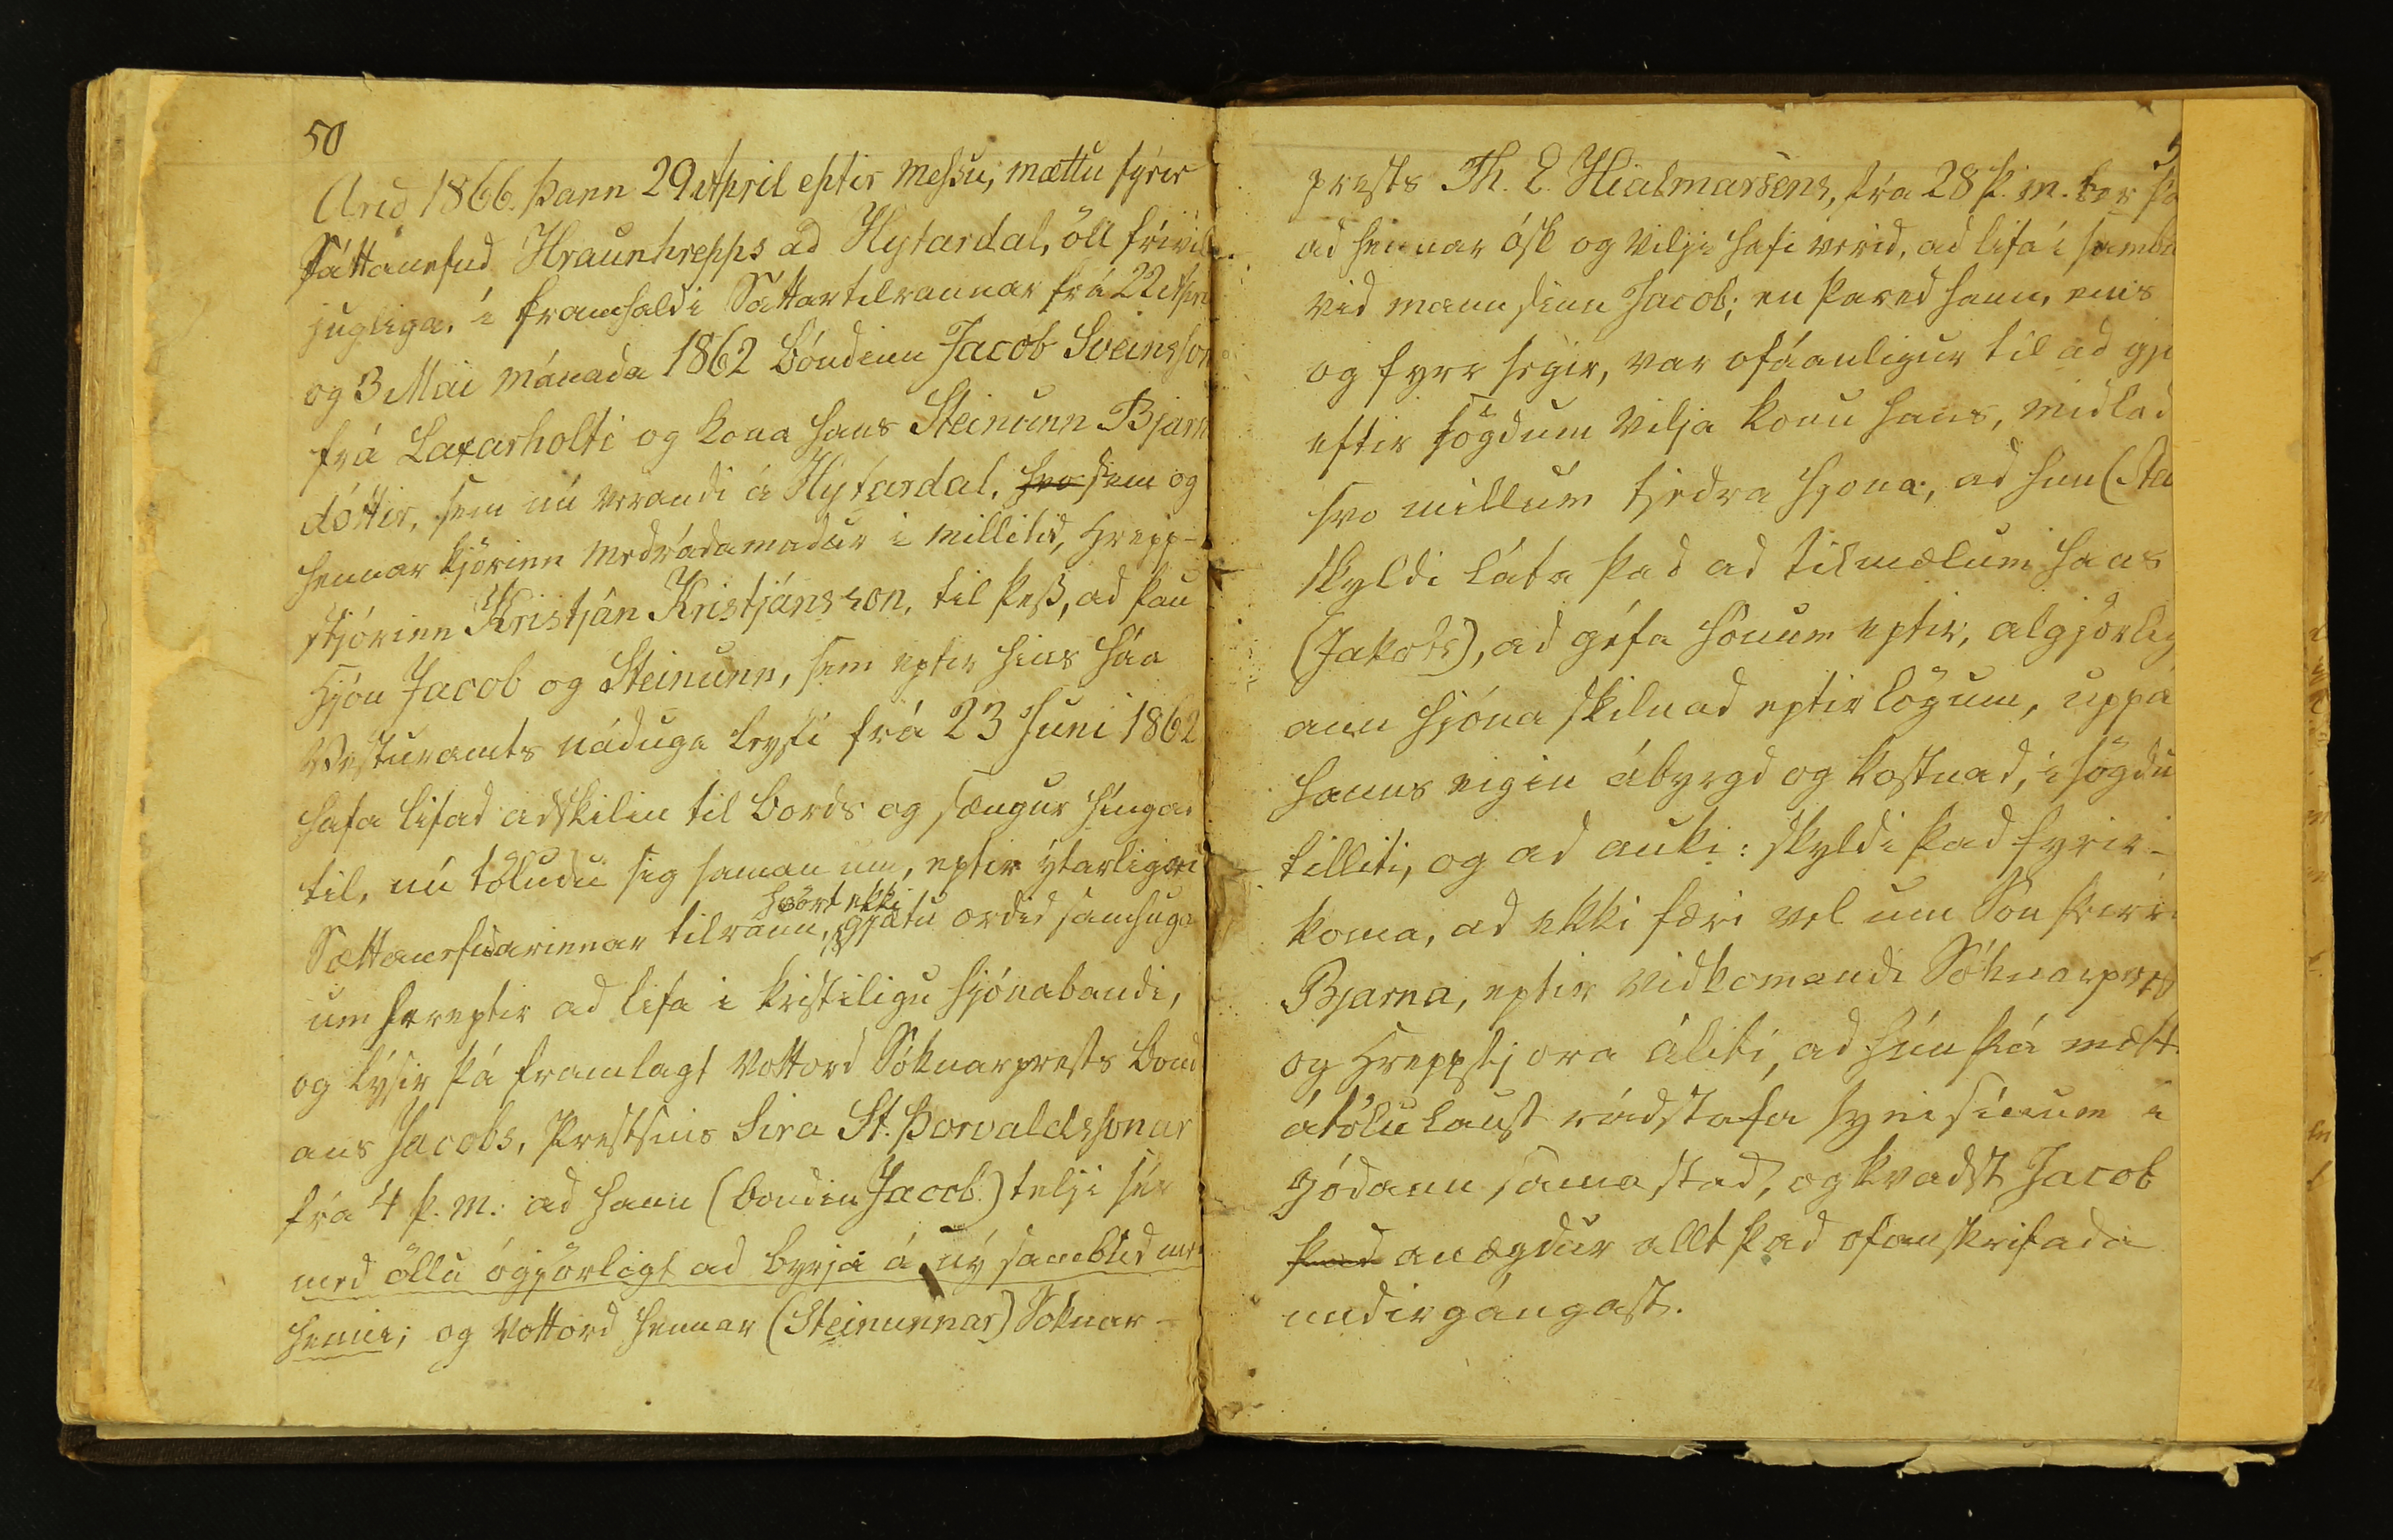 50
Arid 1866. Þann 29 April eptir messu, mættu fyrir
Sáttanefnd Hraunhrepps ad Hytardal, öll frívil
jugliga, i framhaldi Sáttartilraunar frá 22 Apri
og 3 Mai mánada 1862 bóndinn Jacob Sveinsson
frá Laxarholti og kona hans Steinunn Bjarn
dóttir, sem nú verandi á Hytardal, svo sem og
hennar kjörinn medrádamadur i millitid, Hrepp-
stjórinn Kristján Kristjánsson, til þess, ad þau
Hjón Jacob og Steinunn, sem eptir hins háa
Vesturamts náduga leyfi frá 23 Juni 1862
hafa lifad adskilin til bords og sængur hingad
til, nú töludu sig saman um, eptir ýtarligri
hvört ekki
Sættanefndarinnar tilraun, gjætu ordid samhuga
um hereptir ad lifa i kristiligu hjónabandi,
og lýsir þá framlagt vottord Sóknarprests bónd
ans Jacobs, Prestsins Sira St. Þorvaldssonar
frá 4 þ. m. ad hann (bondin Jacob) telji sér
med öllu ógjörligt ad byrja á ný sambúd med
henni; og vottord hennar (Steinunnar) Soknar-
5
prests Th. E. Hialmarsens, frá 28 þ. m. ber þa
ad hennar ósk og vilji hafi verid, ad lifa i sambú
vid mann sinn Jacob; en þared hann, eins
og fyrr segir, var ofáanligur til ad gje
eftir sögdum vilja konu hans, midlad
svo millum tjedra hjona, ad hun (Ste
skyldi láta það ad tilmælum hans
(Jakobs), ad géfa hönum eptir, algjörlig
ann hjóna skilnad eptir lögum, uppá
hanns eigin ábyrgd og kostnad, i sögdu
tilliti, og ad auki: skyldi þad fyrir-
koma, ad ekki færi vel um Son þeirra
Bjarna, eptir vidkomandi Sóknarprests
og Hreppstjora áliti, ad hún þá mætti
átölulaust rádstafa syni sínum i
gódann samastad, og kvadst Jacob
þvad anægdur allt þad ofanskrifada
undirgángast.